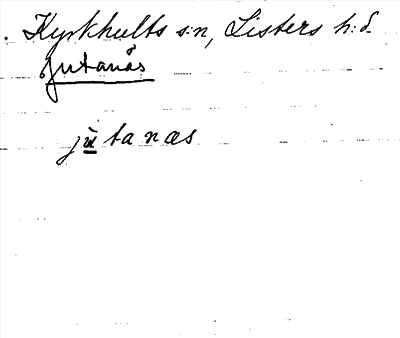 . Kyrkhults s:n, Listers h:d.
Jutanäs
jùtanæs